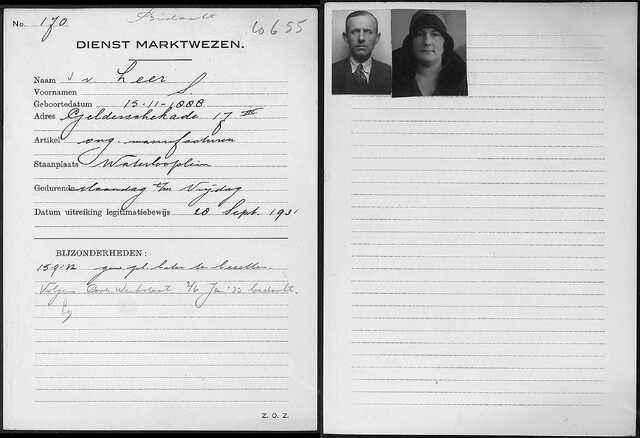 No. 170 Bedankt 60655
DIENST MARKTWEZEN.
Naam v. Leer
Voornamen S.
Geboortedatum 15-11-1888
Adres Gelderschekade 17 III
Artikel ong. manufacturen
Staanplaats Waterlooplein
Gedurende Maandag t/m Vrijdag
Datum uitreiking legitimatiebewijs 28 Sept. 1931
BIJZONDERHEDEN :
15-9-'32 geen pl. te bezetten.
Volgens Jan '33 bedankt.
Z. O. Z.